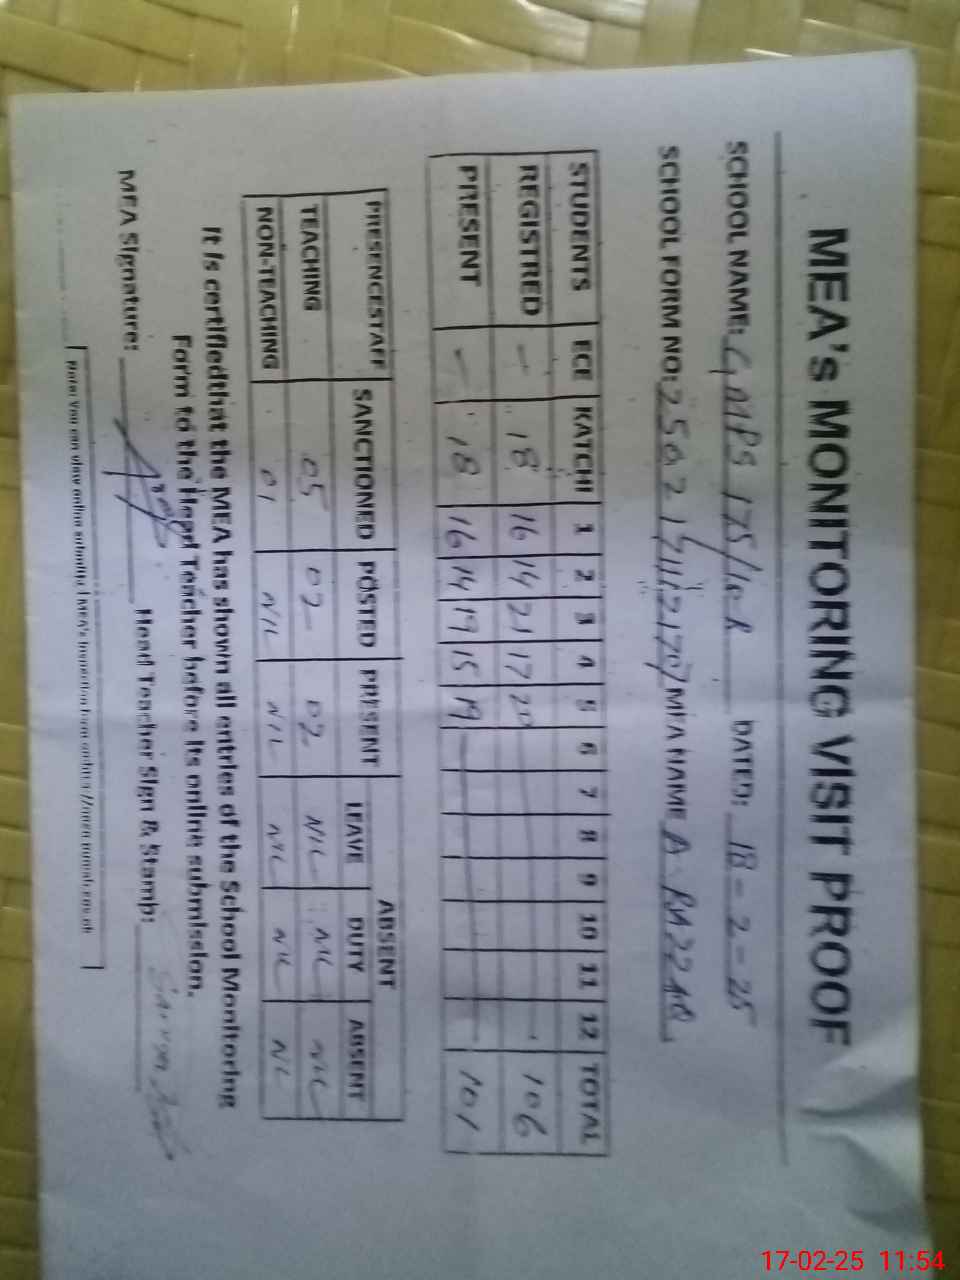 MEA's MONITORING VISIT PROOF
SCHOOL NAME: GMPS 175/10R DATED: 18-2-25
SCHOOL FORM NO: MEA NAME A. RAZZAQ
STUDENTS ECE KATCHI 1 2 3 4 5 6 7 8 9 10 11 12 TOTAL
REGISTRED - 18 16 14 21 17 20 106
PRESENT - 18 16 14 19 15 19 101
PRESENCESTAFF SANCTIONED POSTED PRESENT ABSENT
LEAVE DUTY ABSENT
TEACHING 05 02 02 NIL NIL NIL
NON-TEACHING 01 NIL NIL NIL NIL NIL
It is certifiedthat the MEA has shown all entries of the School Monitoring
Form to the Head Teacher before its online submission.
MEA Signature: Head Teacher Sign & Stamp:
Note: You can view online submitted MEA's inspection form on
17-02-25 11:54